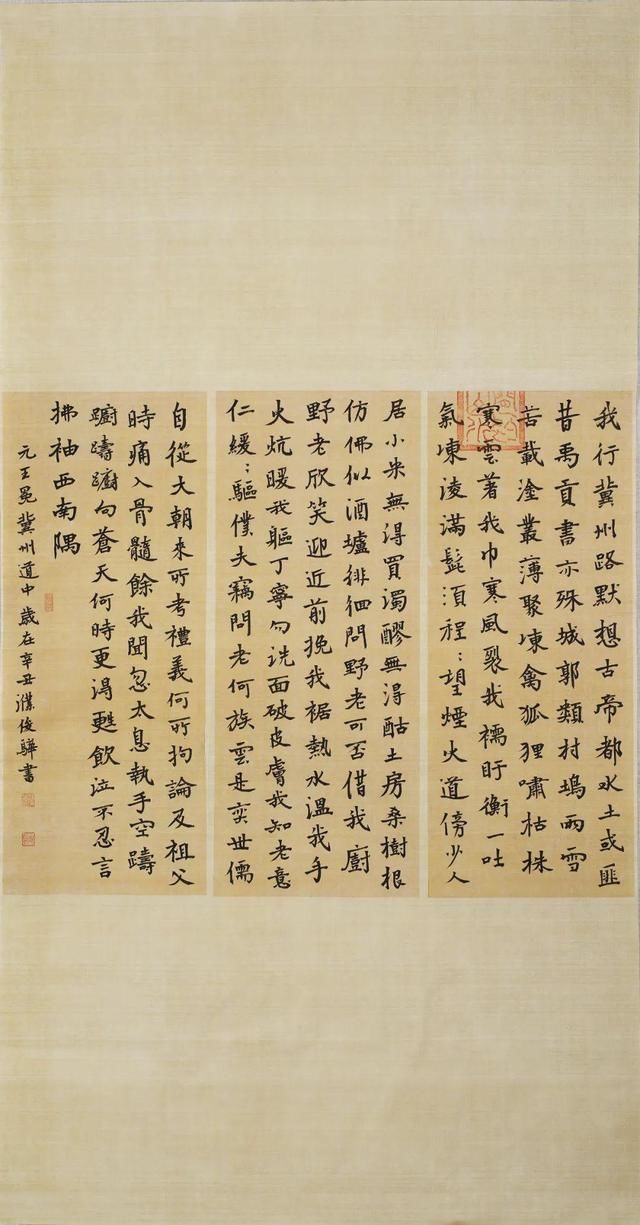 我行冀州路默想古帝都水土或匪
昔禹貢書亦殊城郭類村塢雨雪
苦載塗叢薄聚凍禽狐狸嘯枯株
寒雲著我巾寒風裂我襦盱衡一吐
氣凍淩滿髭須程:望煙火道傍少人
居小米無得買濁醪無得酤土房桑樹根
仿佛似酒壚徘徊問野老可否借我廚
野老欣笑迎近前挽我裾熱水溫我手
火炕暖我軀丁寧勿洗面破皮膚我知老意
仁緩:驅僕夫竊問老何族雲是奕世儒
自從大朝來所考禮義何所拘論及祖父
時痛入骨髓餘我聞忽太息執手空躊
躕躊躕向蒼天何時更得甦飲泣不忍言
拂袖西南隅
元王冕冀州道中 歲在辛丑濮俊驊書